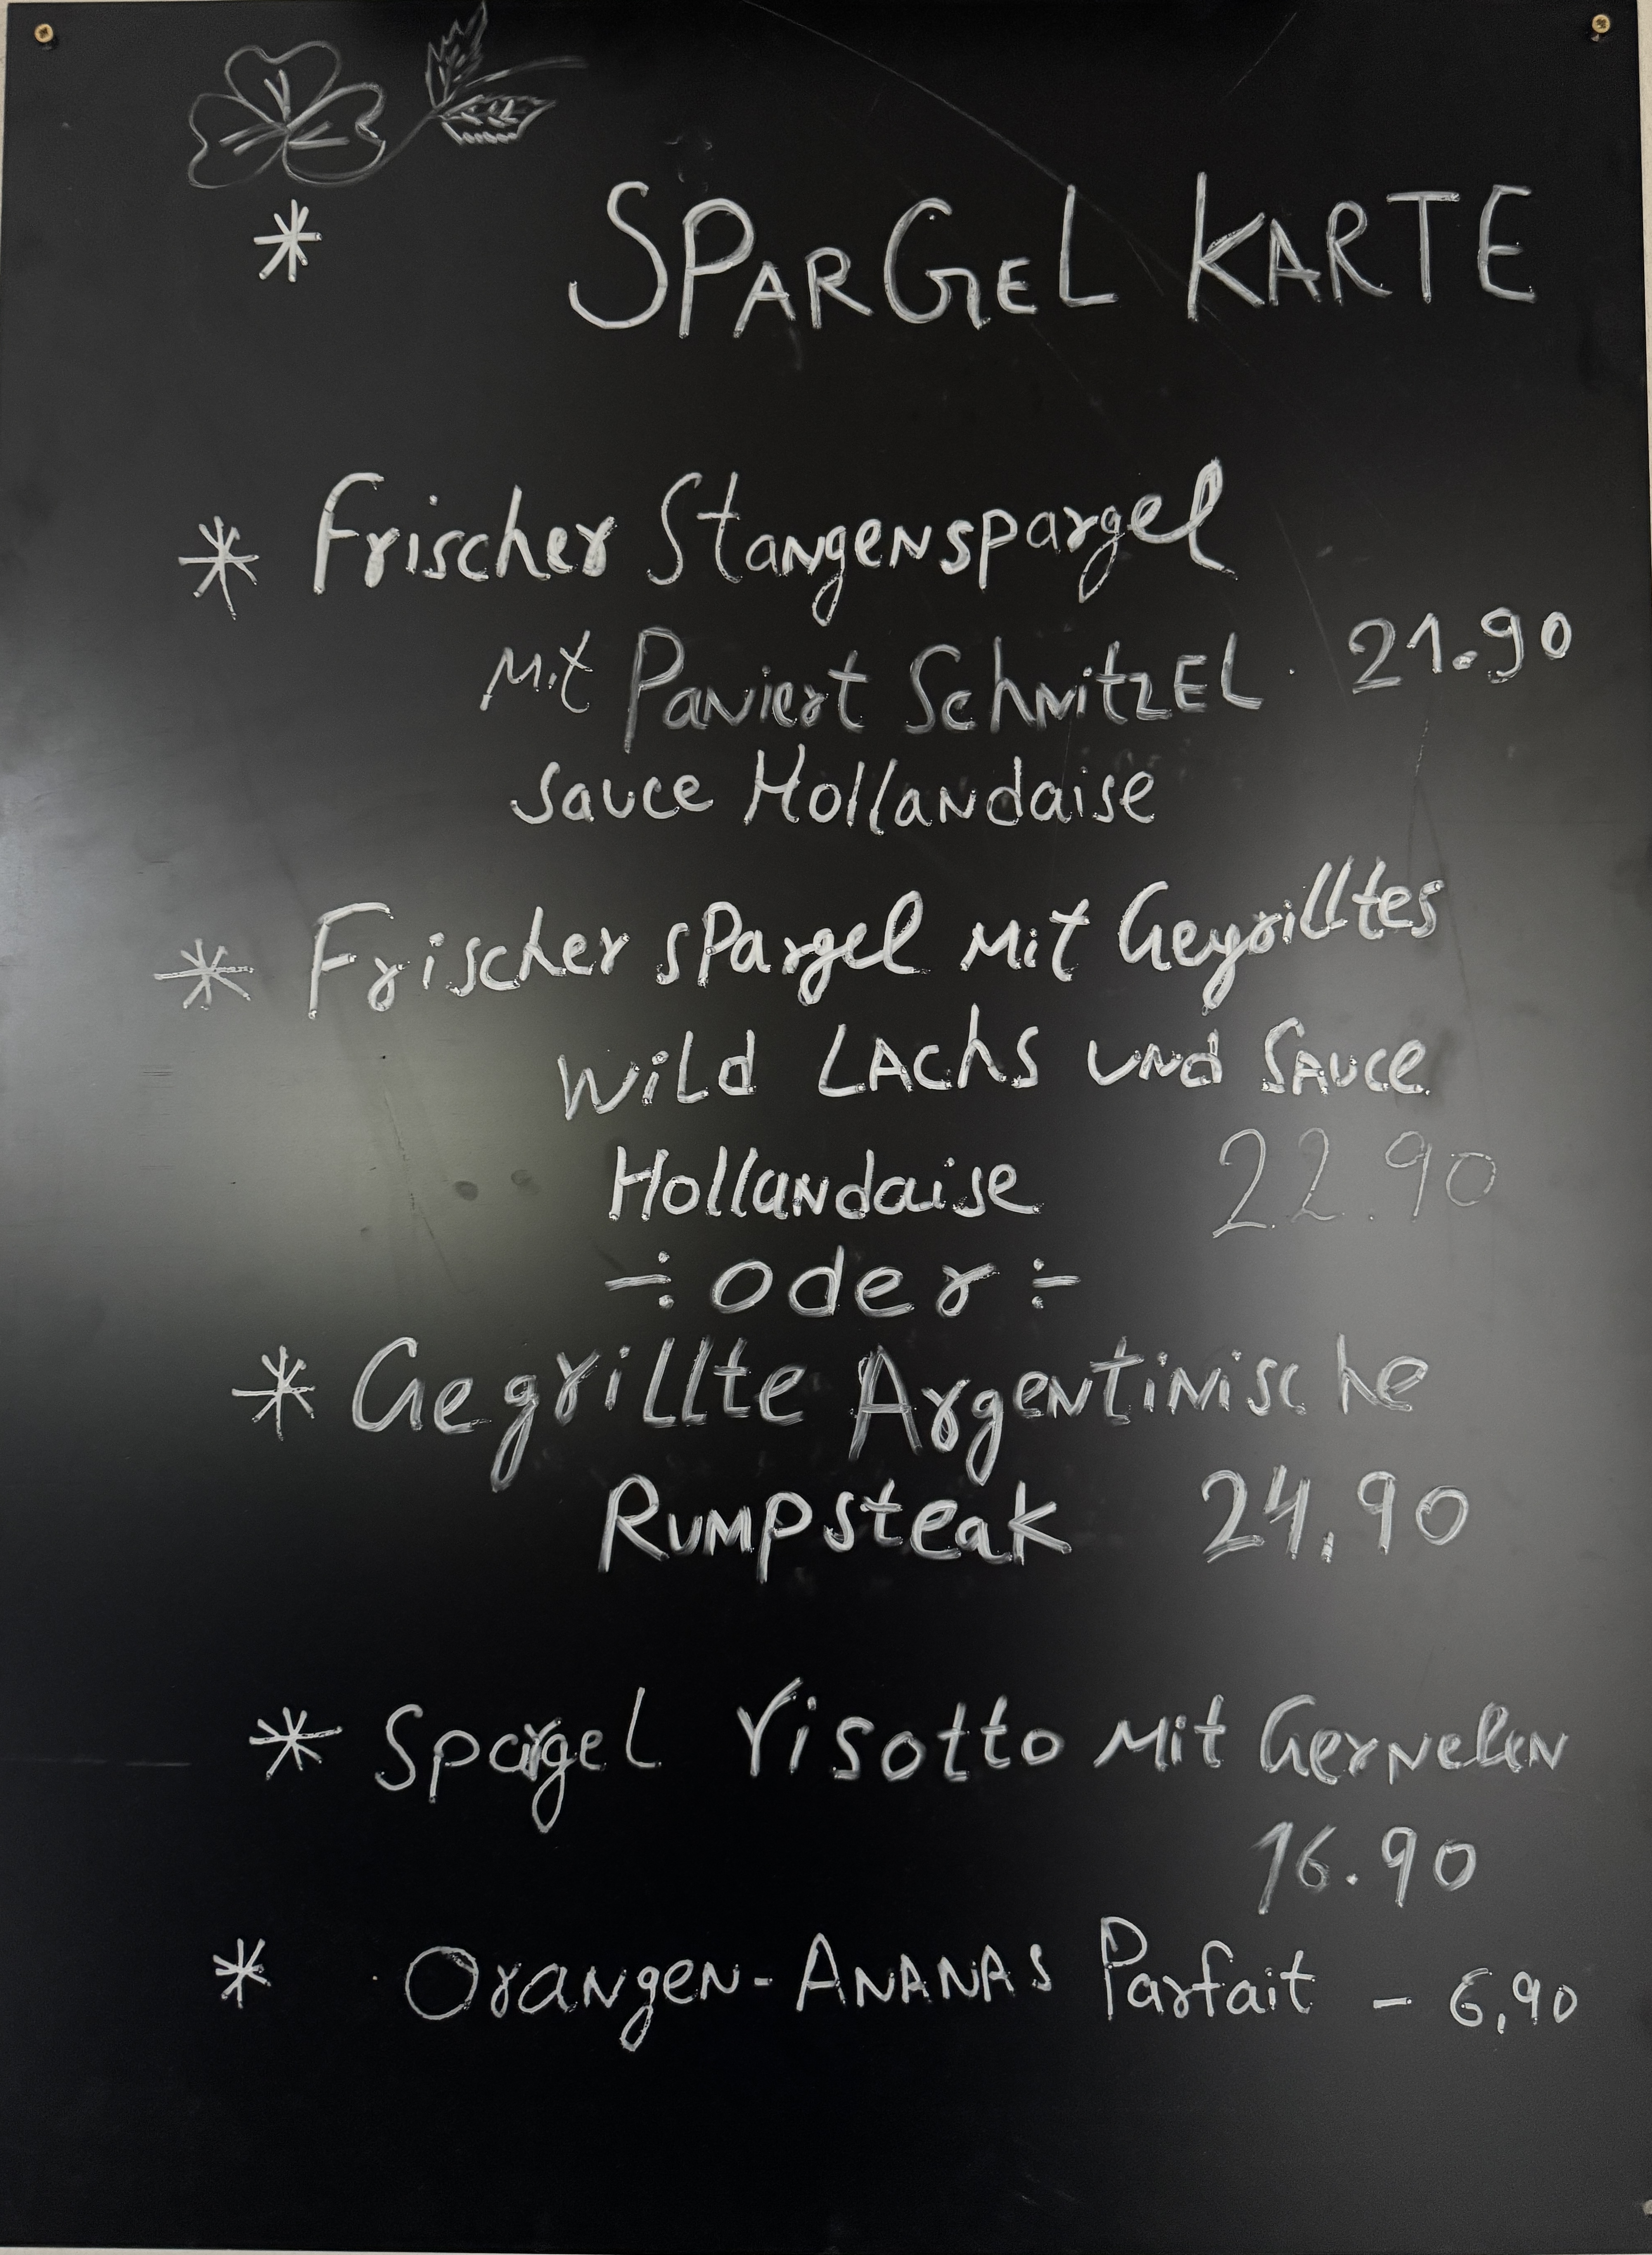 * SPARGEL KARTE
* Frischer Stangenspargel
mit Paniert Schnitzel. 21.90
Sauce Hollandaise
* Frischer Spargel mit Gegrilltes
Wild Lachs und Sauce
Hollandaise 22.90
÷ oder ÷
* Gegrillte Argentinische
Rumpsteak 24,90
* Spargel risotto mit Gernelen
16.90
* Orangen-Ananas Parfait - 6,90